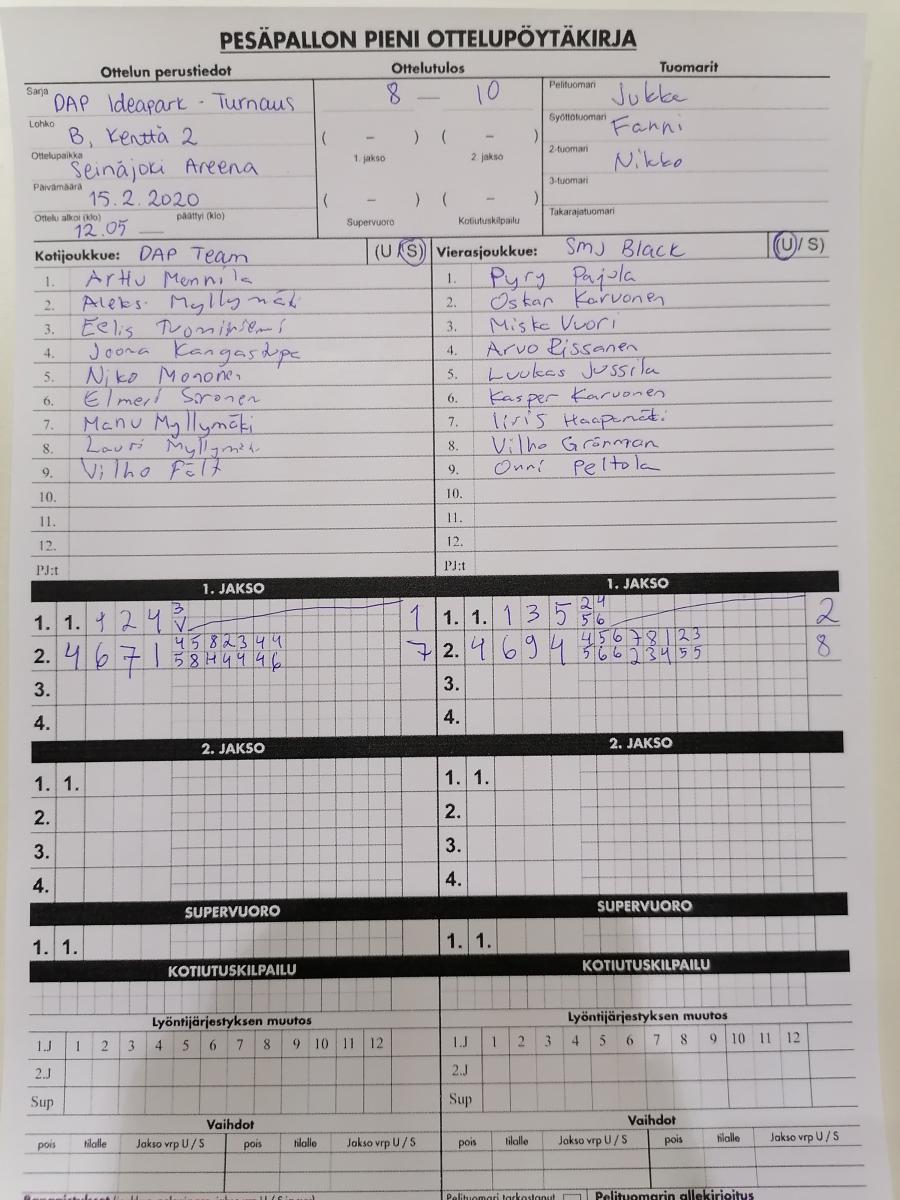 PESÄPALLON PIENI OTTELUPÖYTÄKIRJA
Ottelun perustiedot Ottelutulos Tuomarit
Sarja DAP Ideapark - Turnaus
8 — 10
Pelituomari Jukka
Lohko B, Kenttä 2
( - ) ( - )
Syöttötuomari Fanni
Ottelupaikka Seinäjoki Areena
1. jakso 2. jakso
2-tuomari Nikko
Päivämäärä 15.2.2020
( - ) ( - )
3-tuomari
Ottelu alkoi (klo) 12.05 päättyi (klo) —
Supervuoro Kotiutuskilpailu
Takarajatuomari
Kotijoukkue: DAP Team (U/S) Vierasjoukkue: SMJ Black (U/S)
1. Arttu Mennilä 1. Pyry Pajula
2. Aleksi Myllymäki 2. Oskar Karvonen
3. Eelis 3. Miska Vuori
4. Joona 4. Arvo Rissanen
5. Niko Mononen 5. Luukas Jussila
6. Elmeri Soronen 6. Kasper Karvonen
7. Manu Myllymäki 7. Iiris Haapamäki
8. Lauri Myllymäki 8. Vilho Grönman
9. Vilho Fält 9. Onni Peltola
10. 10.
11. 11.
12. 12.
PJ:t PJ:t
1. JAKSO 1. JAKSO
1. 1. 1 2 4 3 V 1 1. 1. 1 3 5 2 4 5 6 2
2. 4 6 7 1 4 5 8 2 3 4 4 7 2. 4 6 9 4 4 5 6 7 8 1 2 3 8
5 8 4 4 4 4 6 5 6 6 2 3 4 5 5
3. 3.
4. 4.
2. JAKSO 2. JAKSO
1. 1. 1. 1.
2. 2.
3. 3.
4. 4.
SUPERVUORO SUPERVUORO
1. 1. 1. 1.
KOTIUTUSKILPAILU KOTIUTUSKILPAILU
Lyöntijärjestyksen muutos Lyöntijärjestyksen muutos
1.J 1 2 3 4 5 6 7 8 9 10 11 12 1.J 1 2 3 4 5 6 7 8 9 10 11 12
2.J 2.J
Sup Sup
Vaihdot Vaihdot
pois tilalle Jakso vrp U / S pois tilalle Jakso vrp U / S pois tilalle Jakso vrp U / S pois tilalle Jakso vrp U / S
Pelituomari tarkastanut Pelituomarin allekirjoitus